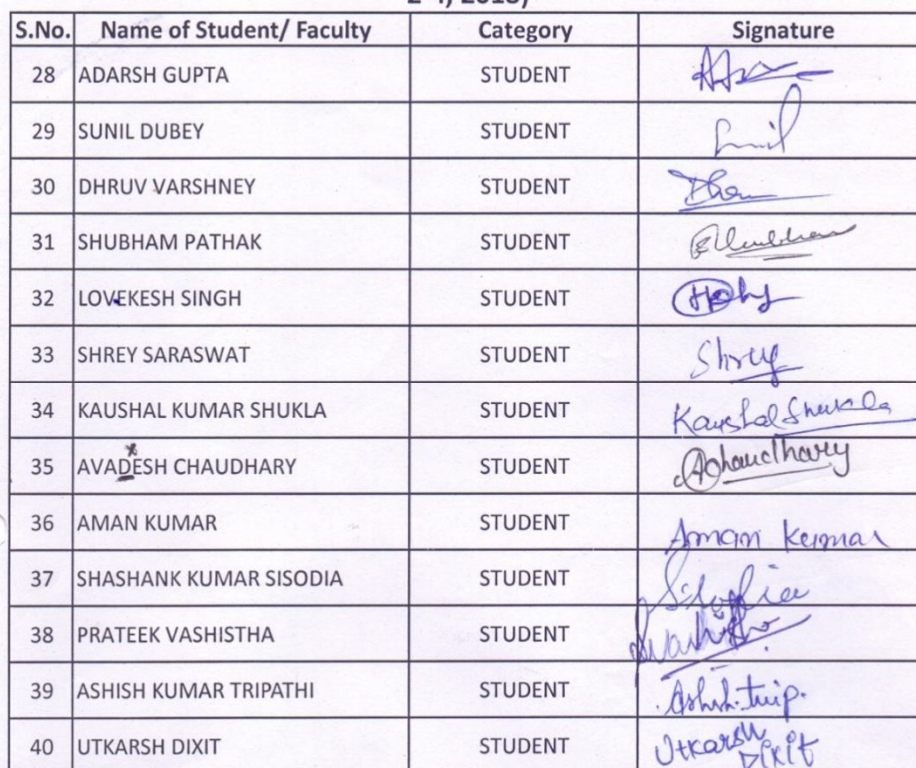 S.No. Name of Student/ Faculty Category Signature
28 ADARSH GUPTA STUDENT
29 SUNIL DUBEY STUDENT Sunil
30 DHRUV VARSHNEY STUDENT
31 SHUBHAM PATHAK STUDENT
32 LOVEKESH SINGH STUDENT
33 SHREY SARASWAT STUDENT Shrey
34 KAUSHAL KUMAR SHUKLA STUDENT Kaushal Shukla
35 AVADESH CHAUDHARY STUDENT AChaudhary
36 AMAN KUMAR STUDENT Aman Kumar
37 SHASHANK KUMAR SISODIA STUDENT
38 PRATEEK VASHISTHA STUDENT
39 ASHISH KUMAR TRIPATHI STUDENT
40 UTKARSH DIXIT STUDENT Utkarsh
DIXIT